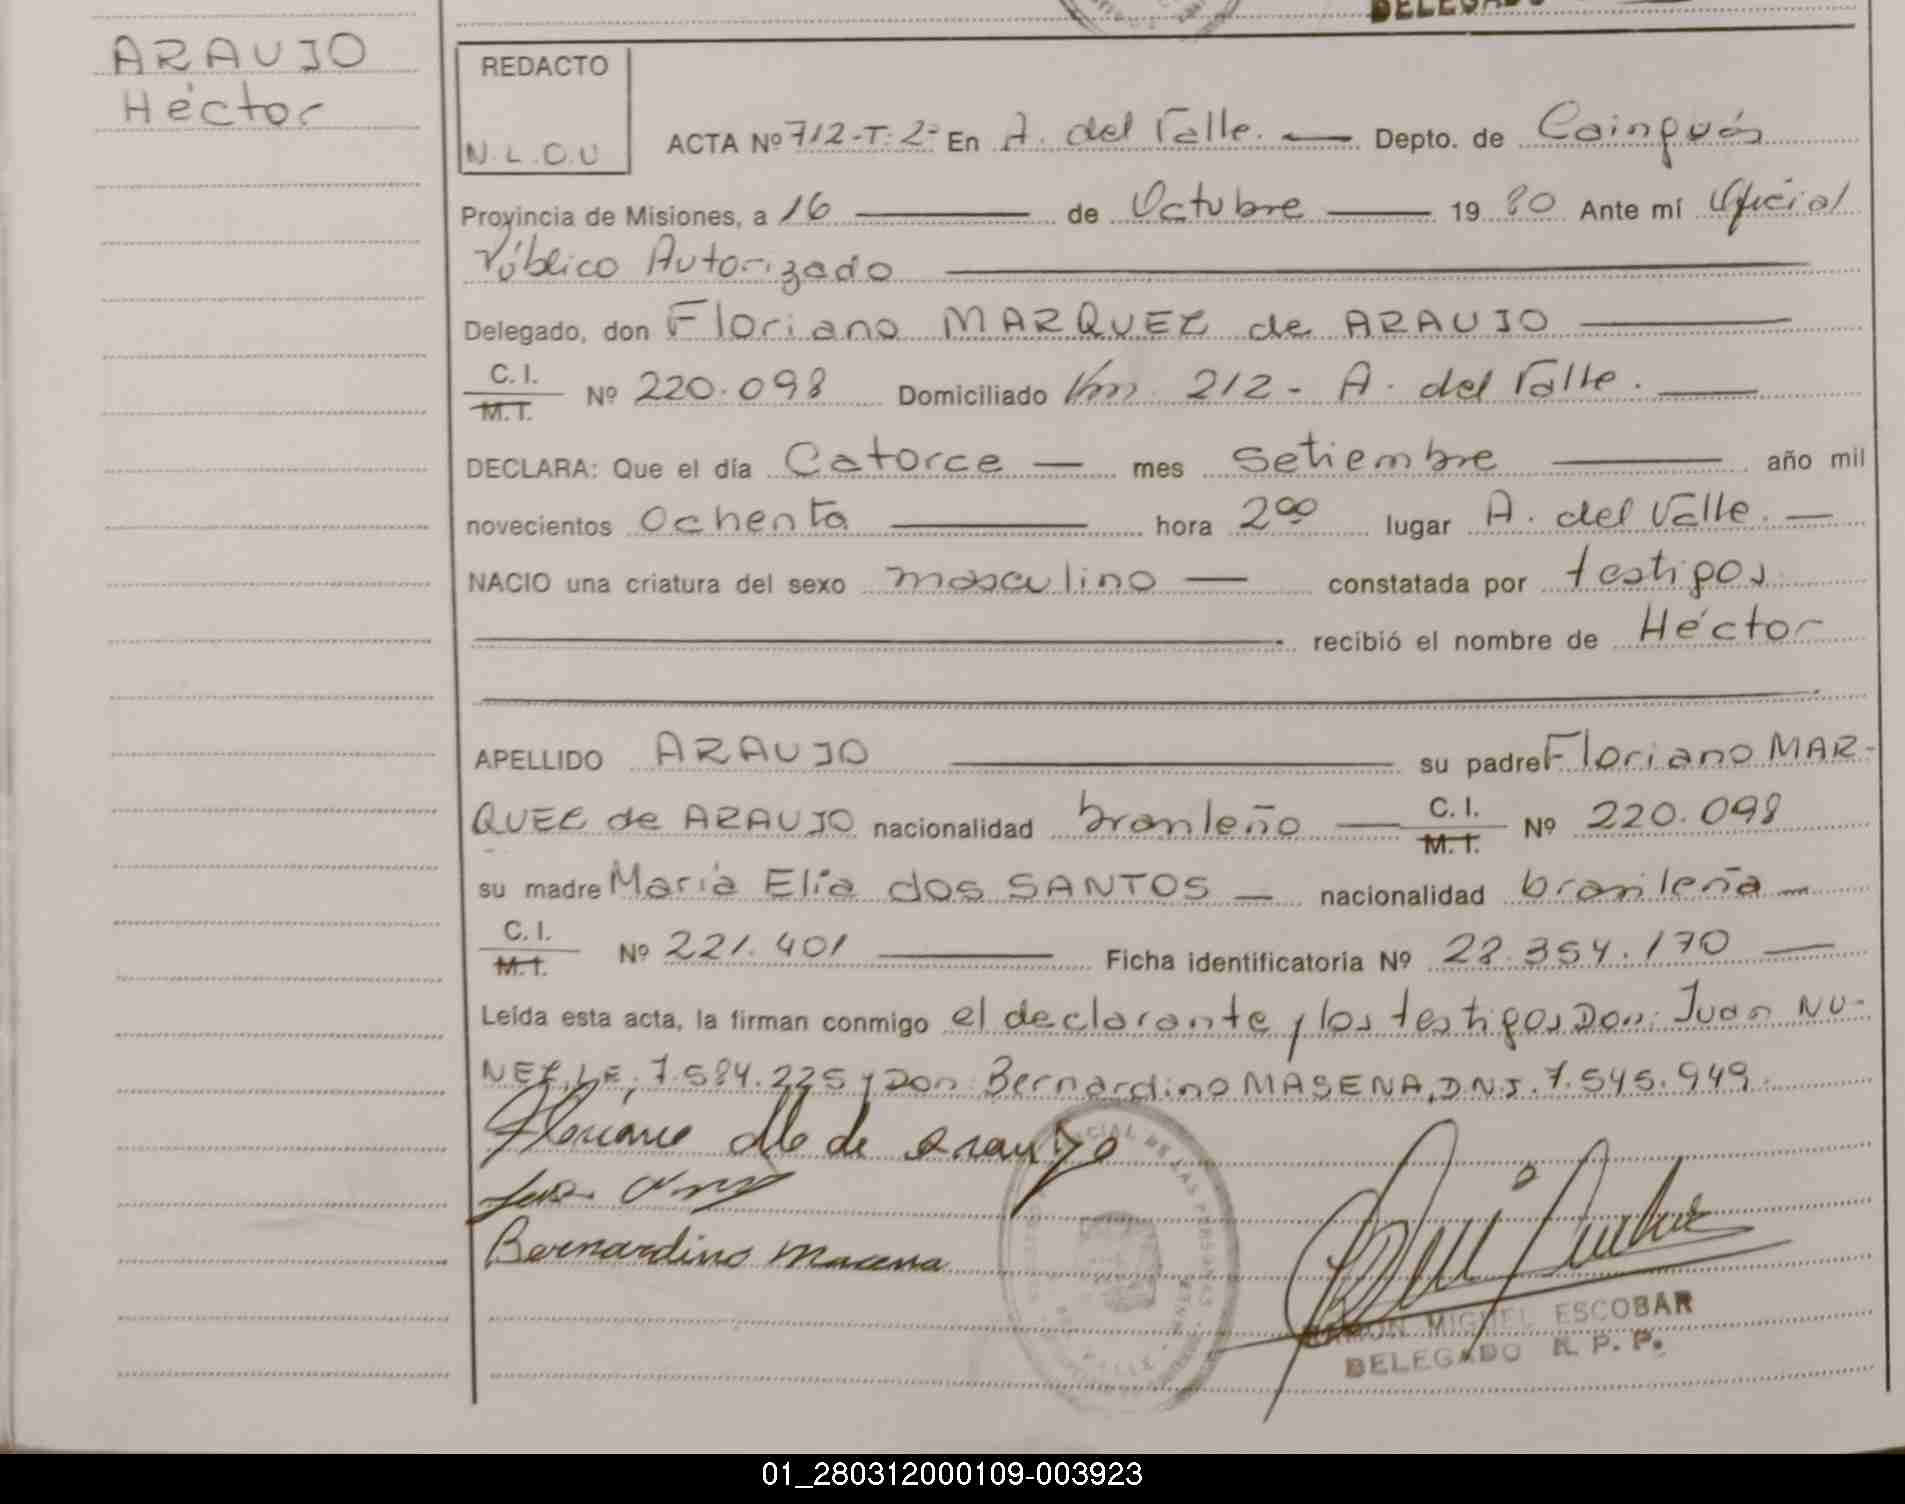 DELEGADO
ARAUJO
Héctor
REDACTO
N.L.O.U
ACTA Nº 712-T: 2º En A. del Valle. Depto. de Cainguás
Provincia de Misiones, a 16 de Octubre 19 80 Ante mí Oficial
Público Autorizado
Delegado, don Floriano MARQUEZ de ARAUJO
C. I.
M. I. Nº 220.098 Domiciliado Km. 212 - A. del Valle.
DECLARA: Que el día Catorce mes setiembre año mil
novecientos Ochenta hora 2⁰⁰ lugar A. del Valle.
NACIO una criatura del sexo masculino constatada por testigos
recibió el nombre de Héctor
APELLIDO ARAUJO su padre Floriano MAR-
QUEZ de ARAUJO nacionalidad brasileño C. I. M. I. Nº 220.098
su madre María Elia dos SANTOS nacionalidad brasileña
C. I.
M. I. Nº 221.401 Ficha identificatoria Nº 28.354.170
Leída esta acta, la firman conmigo el declarante y los testigos Don: Juan NU-
NEZ, L.E. 7.584.225 y Don Bernardino MASENA, D.N.I. 7.545.949
Floriano M de Araujo
Bernardino Macena
RAMON MIGUEL ESCOBAR
DELEGADO R. P. P.
01_280312000109-003923